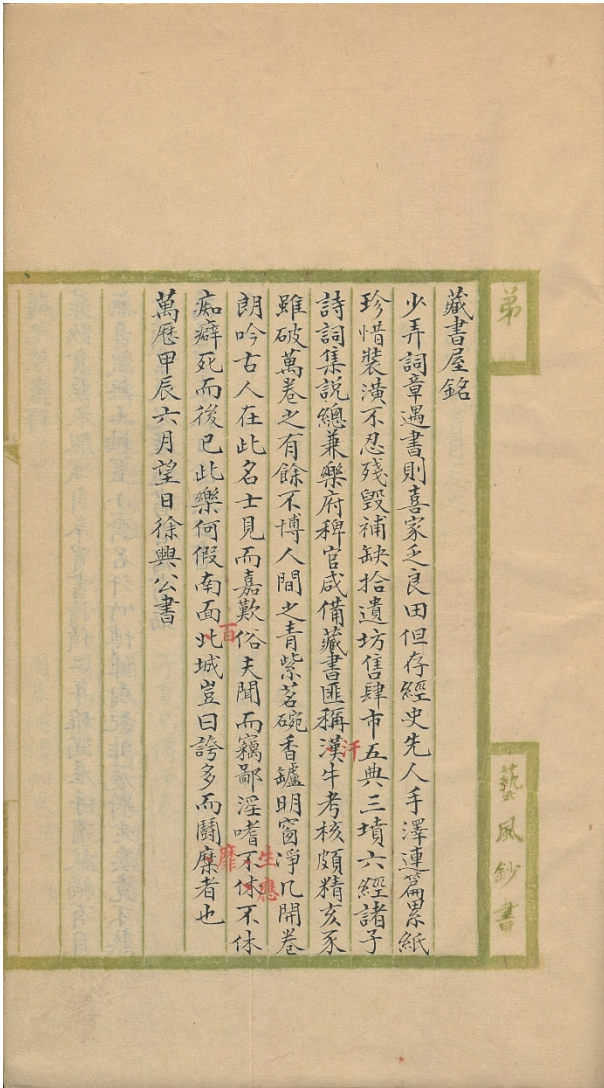 藏書屋銘
少弄詞章遇書則喜家乏良田但存經史先人手澤連篇累紙
珍惜裝潢不忍殘毀補缺拾遺坊售肆市五典三墳六經諸子
詩詞集說總兼樂府稗官咸備藏書匪稱漢牛考核頗精亥豕
雖破萬卷之有餘不博人間之青紫茗碗香鑪明窗淨几開卷
朗吟古人在此名士見而嘉歎俗夫聞而竊鄙淫嗜不休不休
痴癖死而後已此樂何假南面北城豈曰誇多而鬪糜者也
萬歷甲辰六月望日徐興公書
汗
生應
百
靡
弟
藝風鈔書